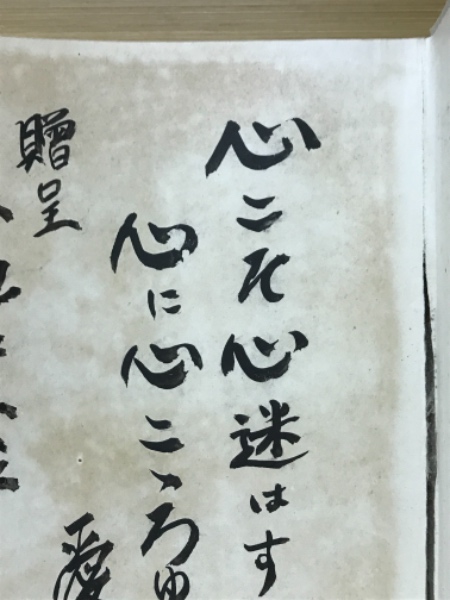 心こそ心迷はす
心に心こゝろゆ
愛
贈呈